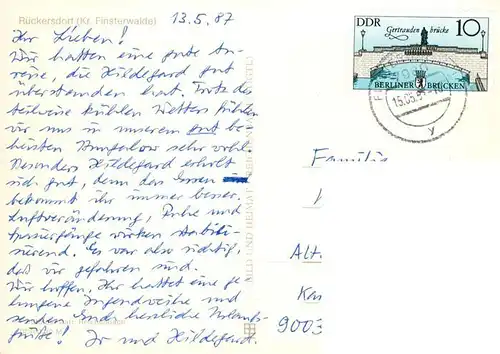 Rückersdorf (Kr. Finsterwalde)
13.5.87
Ihr Lieben!
Wir hatten eine gute An-
reise, die Hildegard gut
überstanden hat. Trotz des
teilweise kühlen Wetters fühlen
wir uns in unserem gut be-
heizten Bungalow sehr wohl.
Besonders Hildegard erholt
sich gut, denn das Essen
bekommt ihr immer besser.
Luftveränderung, Ruhe und
Spaziergänge wirken stabili-
sierend. Es war also richtig,
daß wir gefahren sind.
Wir hoffen, Ihr hattet eine ge-
lungene Jugendweihe und
senden Euch herzliche Urlaubs-
grüße! und Hildegard.
DDR 10
Gertraudenbrücke
BERLINER BRÜCKEN
15.05.
y
Familie
Alt
Ka
9003